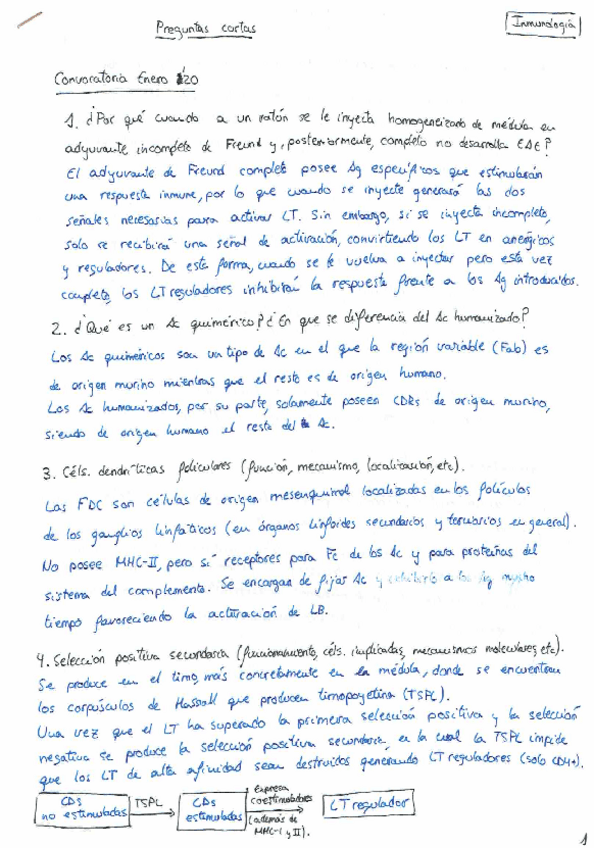 Preguntas cortas
Inmunología
Convocatoria Enero '20
1. ¿Por qué cuando a un ratón se le inyecta homogeneizado de médula en
adyuvante incompleto de Freund y, posteriormente, completo no desarrolla EAE?
El adyuvante de Freund completo posee Ag específicos que estimularán
una respuesta inmune, por lo que cuando se inyecte generará las dos
señales necesarias para activar LT. Sin embargo, si se inyecta incompleto,
solo se recibirá una señal de activación, convirtiendo los LT en anérgicos
y reguladores. De esta forma, cuando se le vuelva a inyectar pero esta vez
completo, los LT reguladores inhibirán la respuesta frente a los Ag introducidos.
2. ¿Qué es un Ac quimérico? ¿En que se diferencia del Ac humanizado?
Los Ac quiméricos son un tipo de Ac en el que la región variable (Fab) es
de origen murino mientras que el resto es de origen humano.
Los Ac humanizados, por su parte, solamente poseen CDRs de origen murino,
siendo de origen humano el resto del Ac.
3. Céls. dendríticas foliculares (función, mecanismo, localización, etc).
Las FDC son células de origen mesenquimal localizadas en los folículos
de los ganglios linfáticos (en órganos linfoides secundarios y terciarios en general).
No posee MHC-II, pero sí receptores para Fc de los Ac y para proteínas del
sistema del complemento. Se encargan de fijar Ac y a los Ag mucho
tiempo favoreciendo la activación de LB.
4. Selección positiva secundaria (funcionamiento, céls. implicadas, mecanismos moleculares, etc).
Se produce en el timo, más concretamente en la médula, donde se encuentran
los corpúsculos de Hassall que producen timopoyetina (TSPL).
Una vez que el LT ha superado la primera selección positiva y la selección
negativa se produce la selección positiva secundaria, en la cual la TSPL impide
que los LT de alta afinidad sean destruidos generando LT reguladores (solo CD4+).
CDs
no estimuladas
TSPL
CDs
estimuladas
expresa
coestimuladores
(además de
MHC-I y II).
LT regulador
1